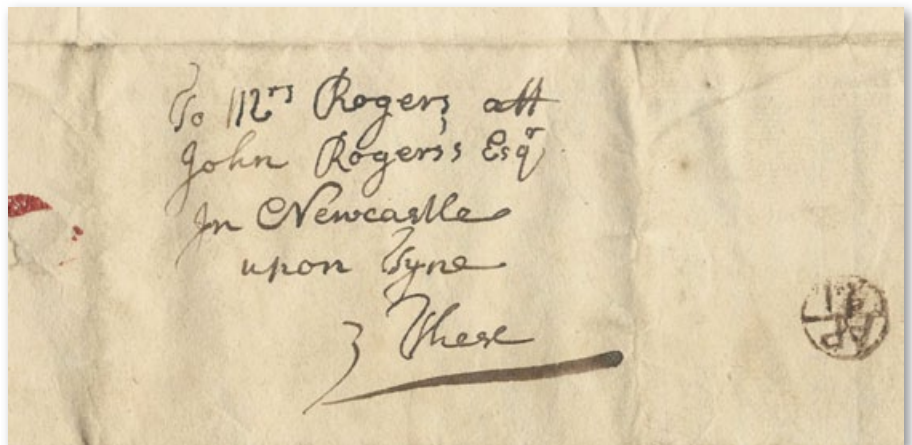 To Mrs Rogers att
John Rogers's Esqr
In Newcastle
upon Tyne
These
AP